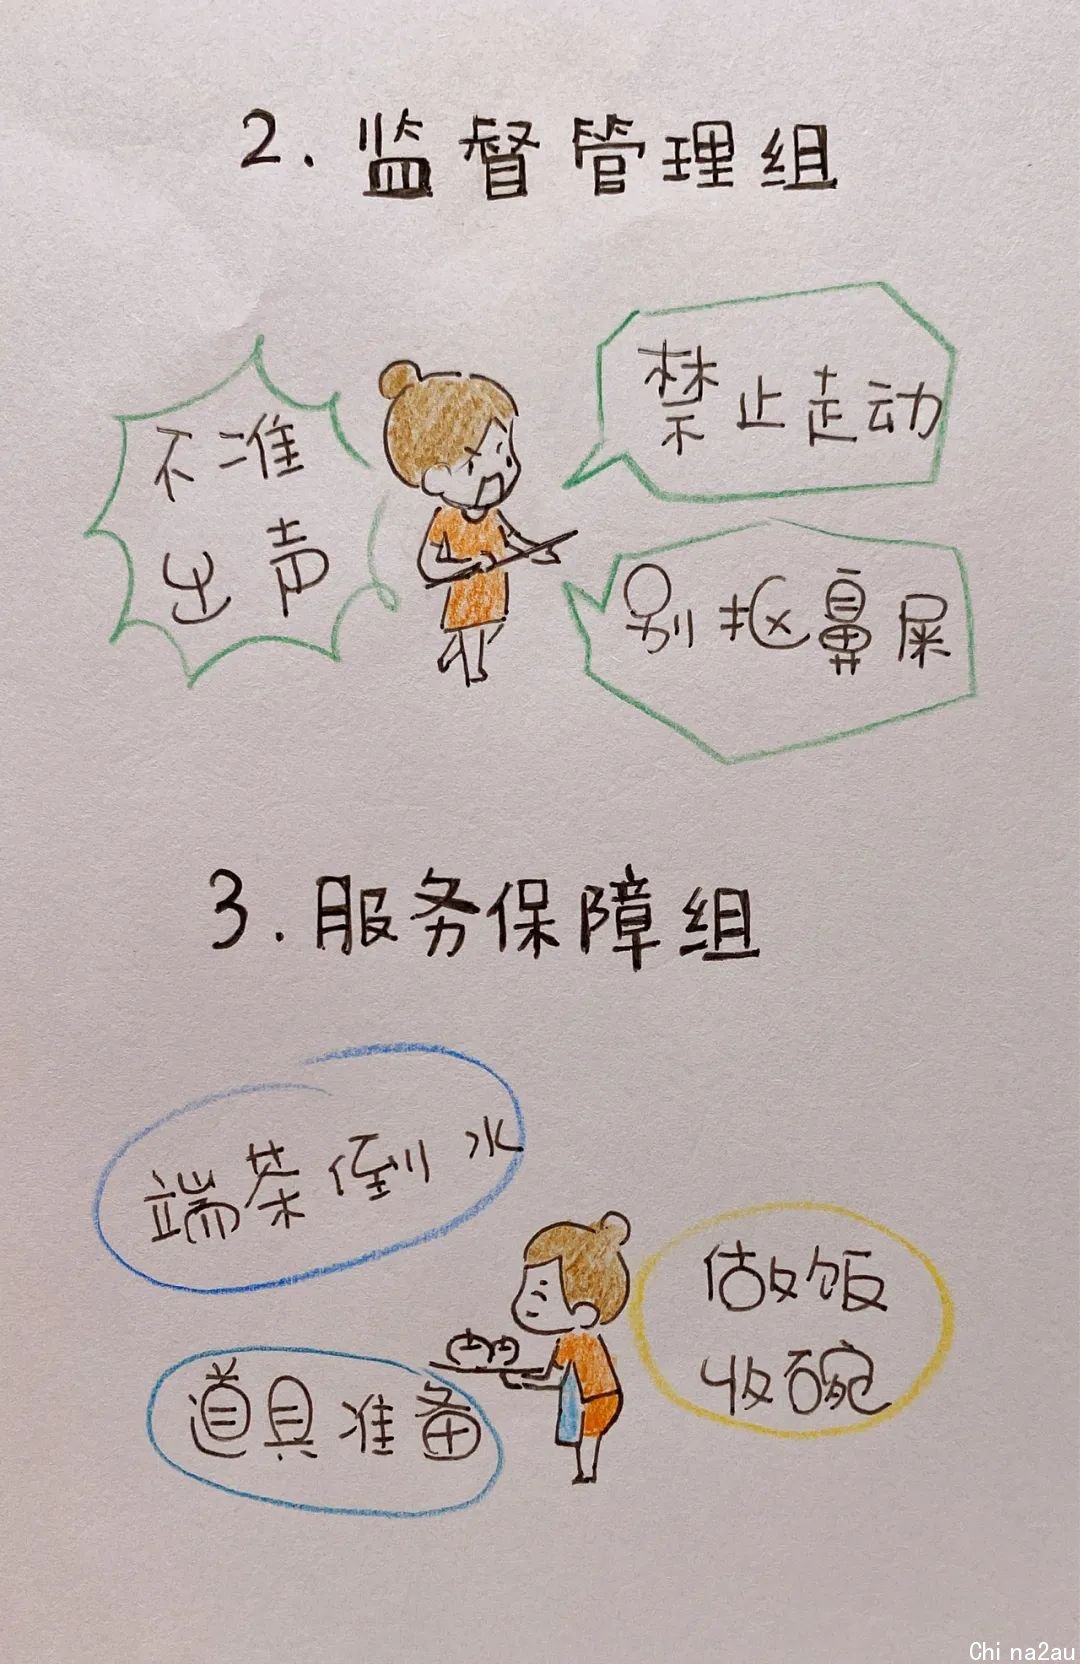 2. 监督管理组
不准
出声
禁止走动
别抠鼻屎
3. 服务保障组
端茶倒水
做饭
收碗
道具准备
Chi na2au